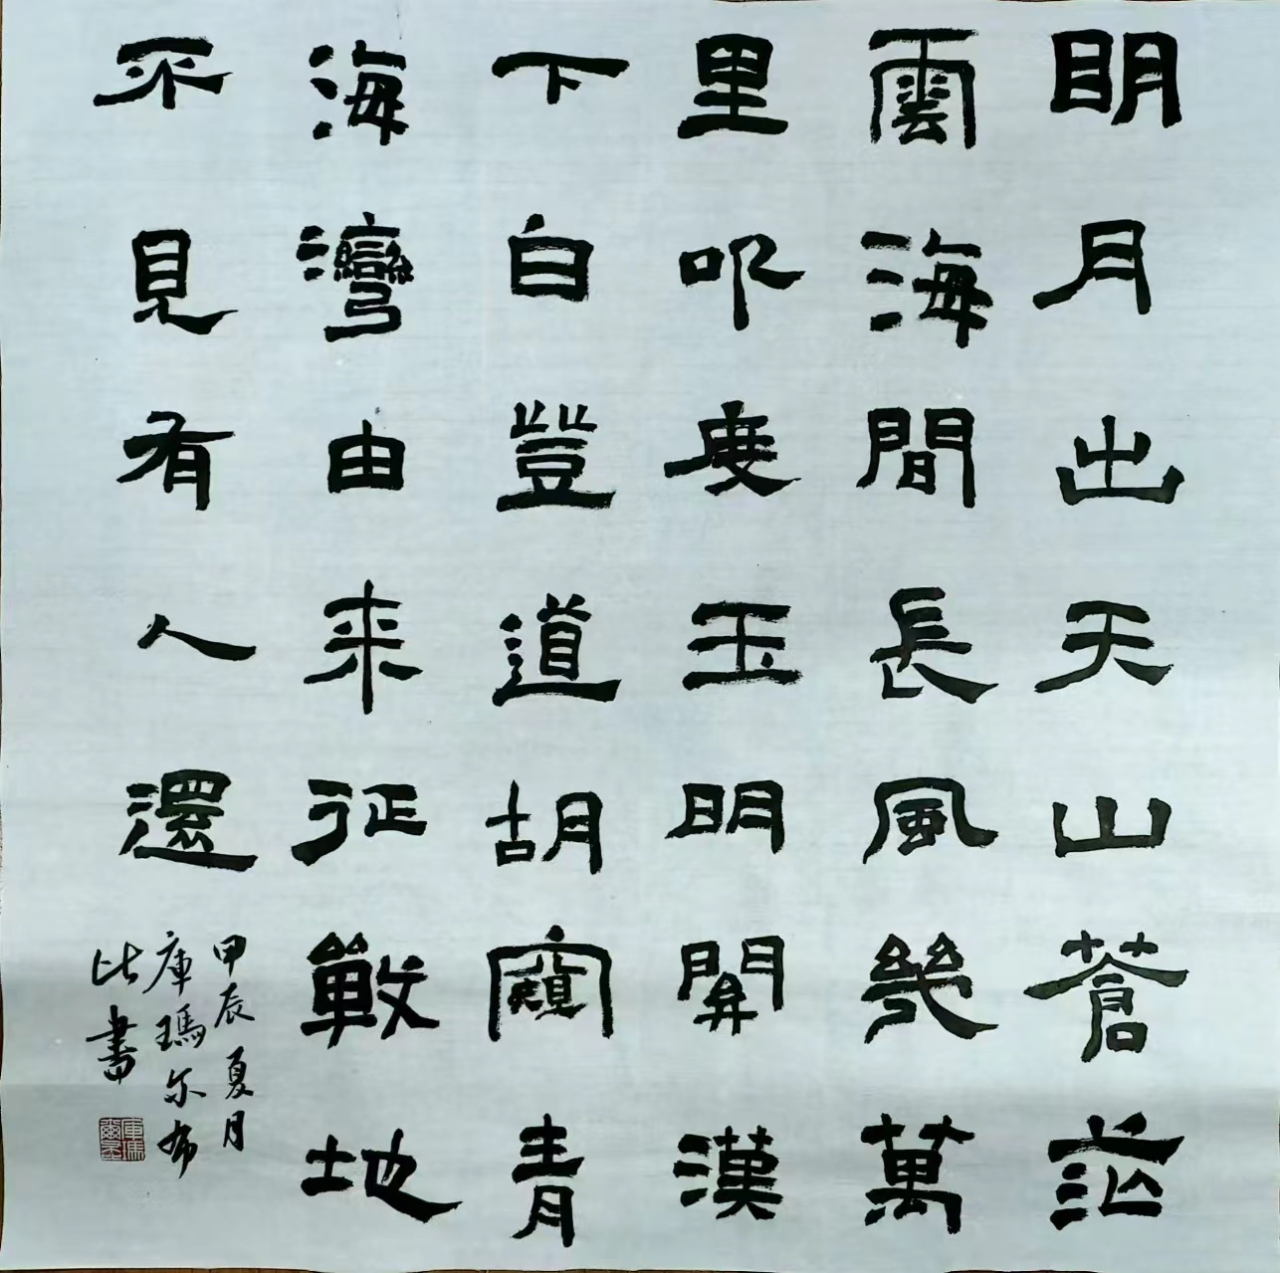 眀月出天山蒼茫
雲海間長風幾萬
里度玉明開漢
下白登道胡窺青
海灣由来征戰地
不見有人還
甲辰夏月
庫瑪尔布
比書